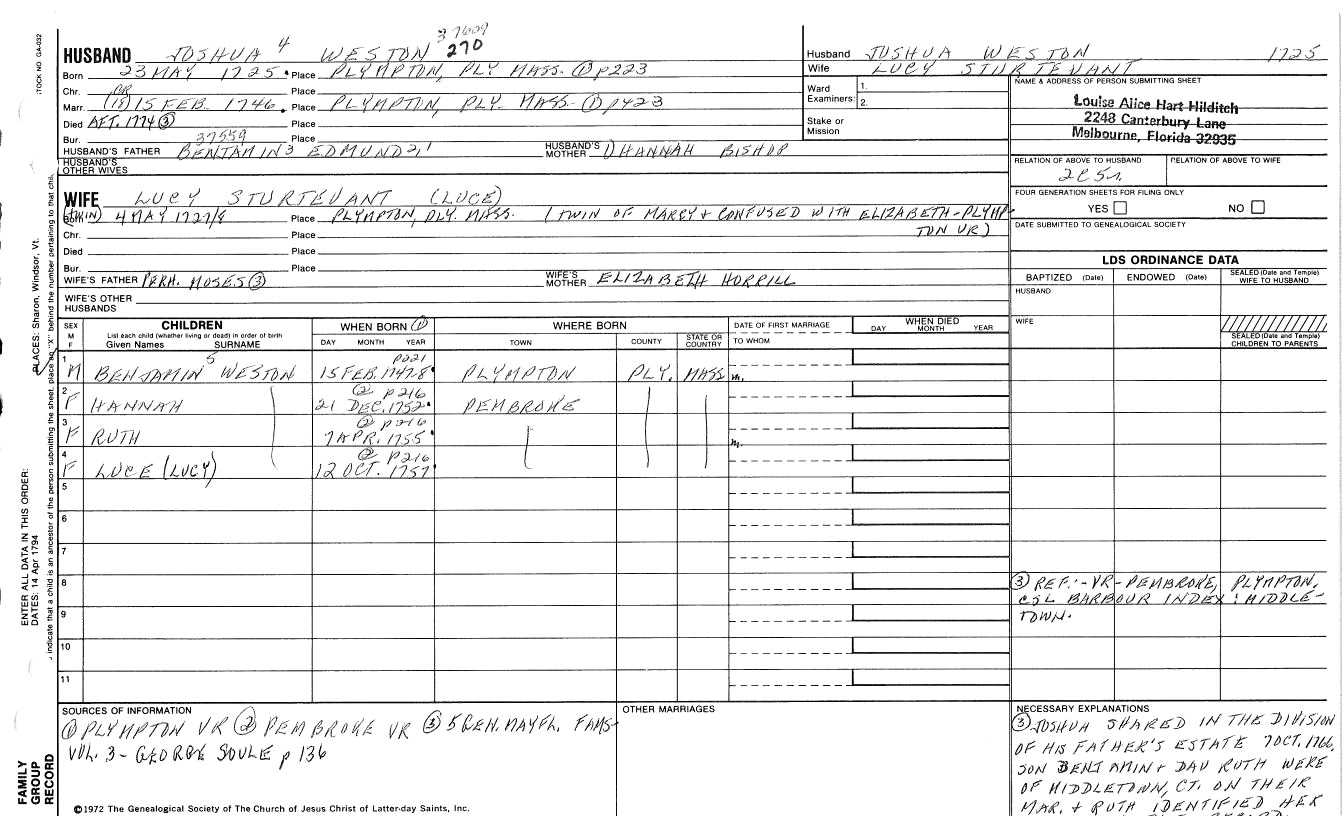 STOCK NO. GA-032
HUSBAND JOSHUA 4 WESTON 270
Born 23 MAY 1725. Place PLYMPTON, PLY MASS. ① p223
Chr. Place
OR
Marr. (18) 15 FEB. 1746. Place PLYMPTON, PLY. MASS- ① p423
Died AFT. 1774 ③ Place
37559
Bur. Place
HUSBAND'S FATHER BENJAMIN 3 EDMUND 2, 1 HUSBAND'S MOTHER 1) HANNAH BISHOP
HUSBAND'S OTHER WIVES
Husband JOSHUA WESTON 1725
Wife LUCY STURTEVANT
Ward 1.
Examiners: 2.
Stake or
Mission
NAME & ADDRESS OF PERSON SUBMITTING SHEET
Louise Alice Hart Hilditch
2248 Canterbury Lane
Melbourne, Florida 32935
RELATION OF ABOVE TO HUSBAND RELATION OF ABOVE TO WIFE
2C5r.
FOUR GENERATION SHEETS FOR FILING ONLY
YES NO
DATE SUBMITTED TO GENEALOGICAL SOCIETY
WIFE LUCY STURTEVANT (LUCE)
(TWIN)
Born 4 MAY 1727/8 Place PLYMPTON, PLY. MASS. (TWIN OF MARCY & CONFUSED WITH ELIZABETH-PLYMP
Chr. Place TON VR)
Died Place
Bur. Place
WIFE'S FATHER PERH. MOSES ③ WIFE'S MOTHER ELIZABETH HORRILL
WIFE'S OTHER HUSBANDS
LDS ORDINANCE DATA
BAPTIZED (Date) ENDOWED (Date) SEALED (Date and Temple) WIFE TO HUSBAND
HUSBAND
WIFE
SEALED (Date and Temple) CHILDREN TO PARENTS
SEX M F CHILDREN WHEN BORN ① WHERE BORN DATE OF FIRST MARRIAGE WHEN DIED
List each child (whether living or dead) in order of birth
Given Names SURNAME DAY MONTH YEAR TOWN COUNTY STATE OR COUNTRY TO WHOM DAY MONTH YEAR
5 p221
1 M BENJAMIN WESTON 15 FEB. 1747-8 PLYMPTON PLY. MASS m.
② p216
2 F HANNAH 21 DEC. 1752. PEMBROKE
② p216
3 F RUTH 7 APR. 1755. m.
② p216
4 F LUCE (LUCY) 12 OCT. 1757.
5
6
7
8
9
10
11
③ REF.:-VR-PEMBROKE, PLYMPTON.
CSL BARBOUR INDEX: MIDDLE-
TOWN.
SOURCES OF INFORMATION
① PLYMPTON VR ② PEMBROKE VR ③ 5 GEN. MAYFL. FAMS-
VOL. 3- GEORGE SOULE p 136
OTHER MARRIAGES
NECESSARY EXPLANATIONS
③ JOSHUA SHARED IN THE DIVISION
OF HIS FATHER'S ESTATE 7 OCT. 1766.
SON BENJAMIN & DAU RUTH WERE
OF MIDDLETOWN, CT. ON THEIR
MAR. & RUTH IDENTIFIED HER
©1972 The Genealogical Society of The Church of Jesus Christ of Latter-day Saints, Inc.
FAMILY
GROUP
RECORD
ENTER ALL DATA IN THIS ORDER:
DATES: 14 Apr 1794
PLACES: Sharon, Windsor, Vt.
indicate that a child is an ancestor of the person submitting the sheet, place an "X" behind the number pertaining to that child.